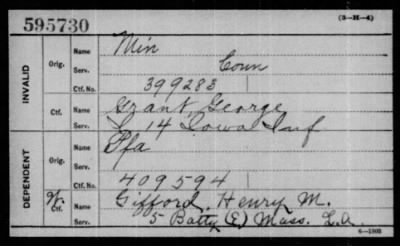 595730 (3-H-4)
INVALID
Orig. Name Min
Serv. Coun
Ctf. No. 399283
Ctf. Name Grant, George
Serv. I 14 Iowa Inf
DEPENDENT
Orig. Name Pfa
Serv.
Ctf. No. 409594
W. Ctf. Name Gifford, Henry M.
Serv. 5 Batty (E) Mass. L.A.
6-1903